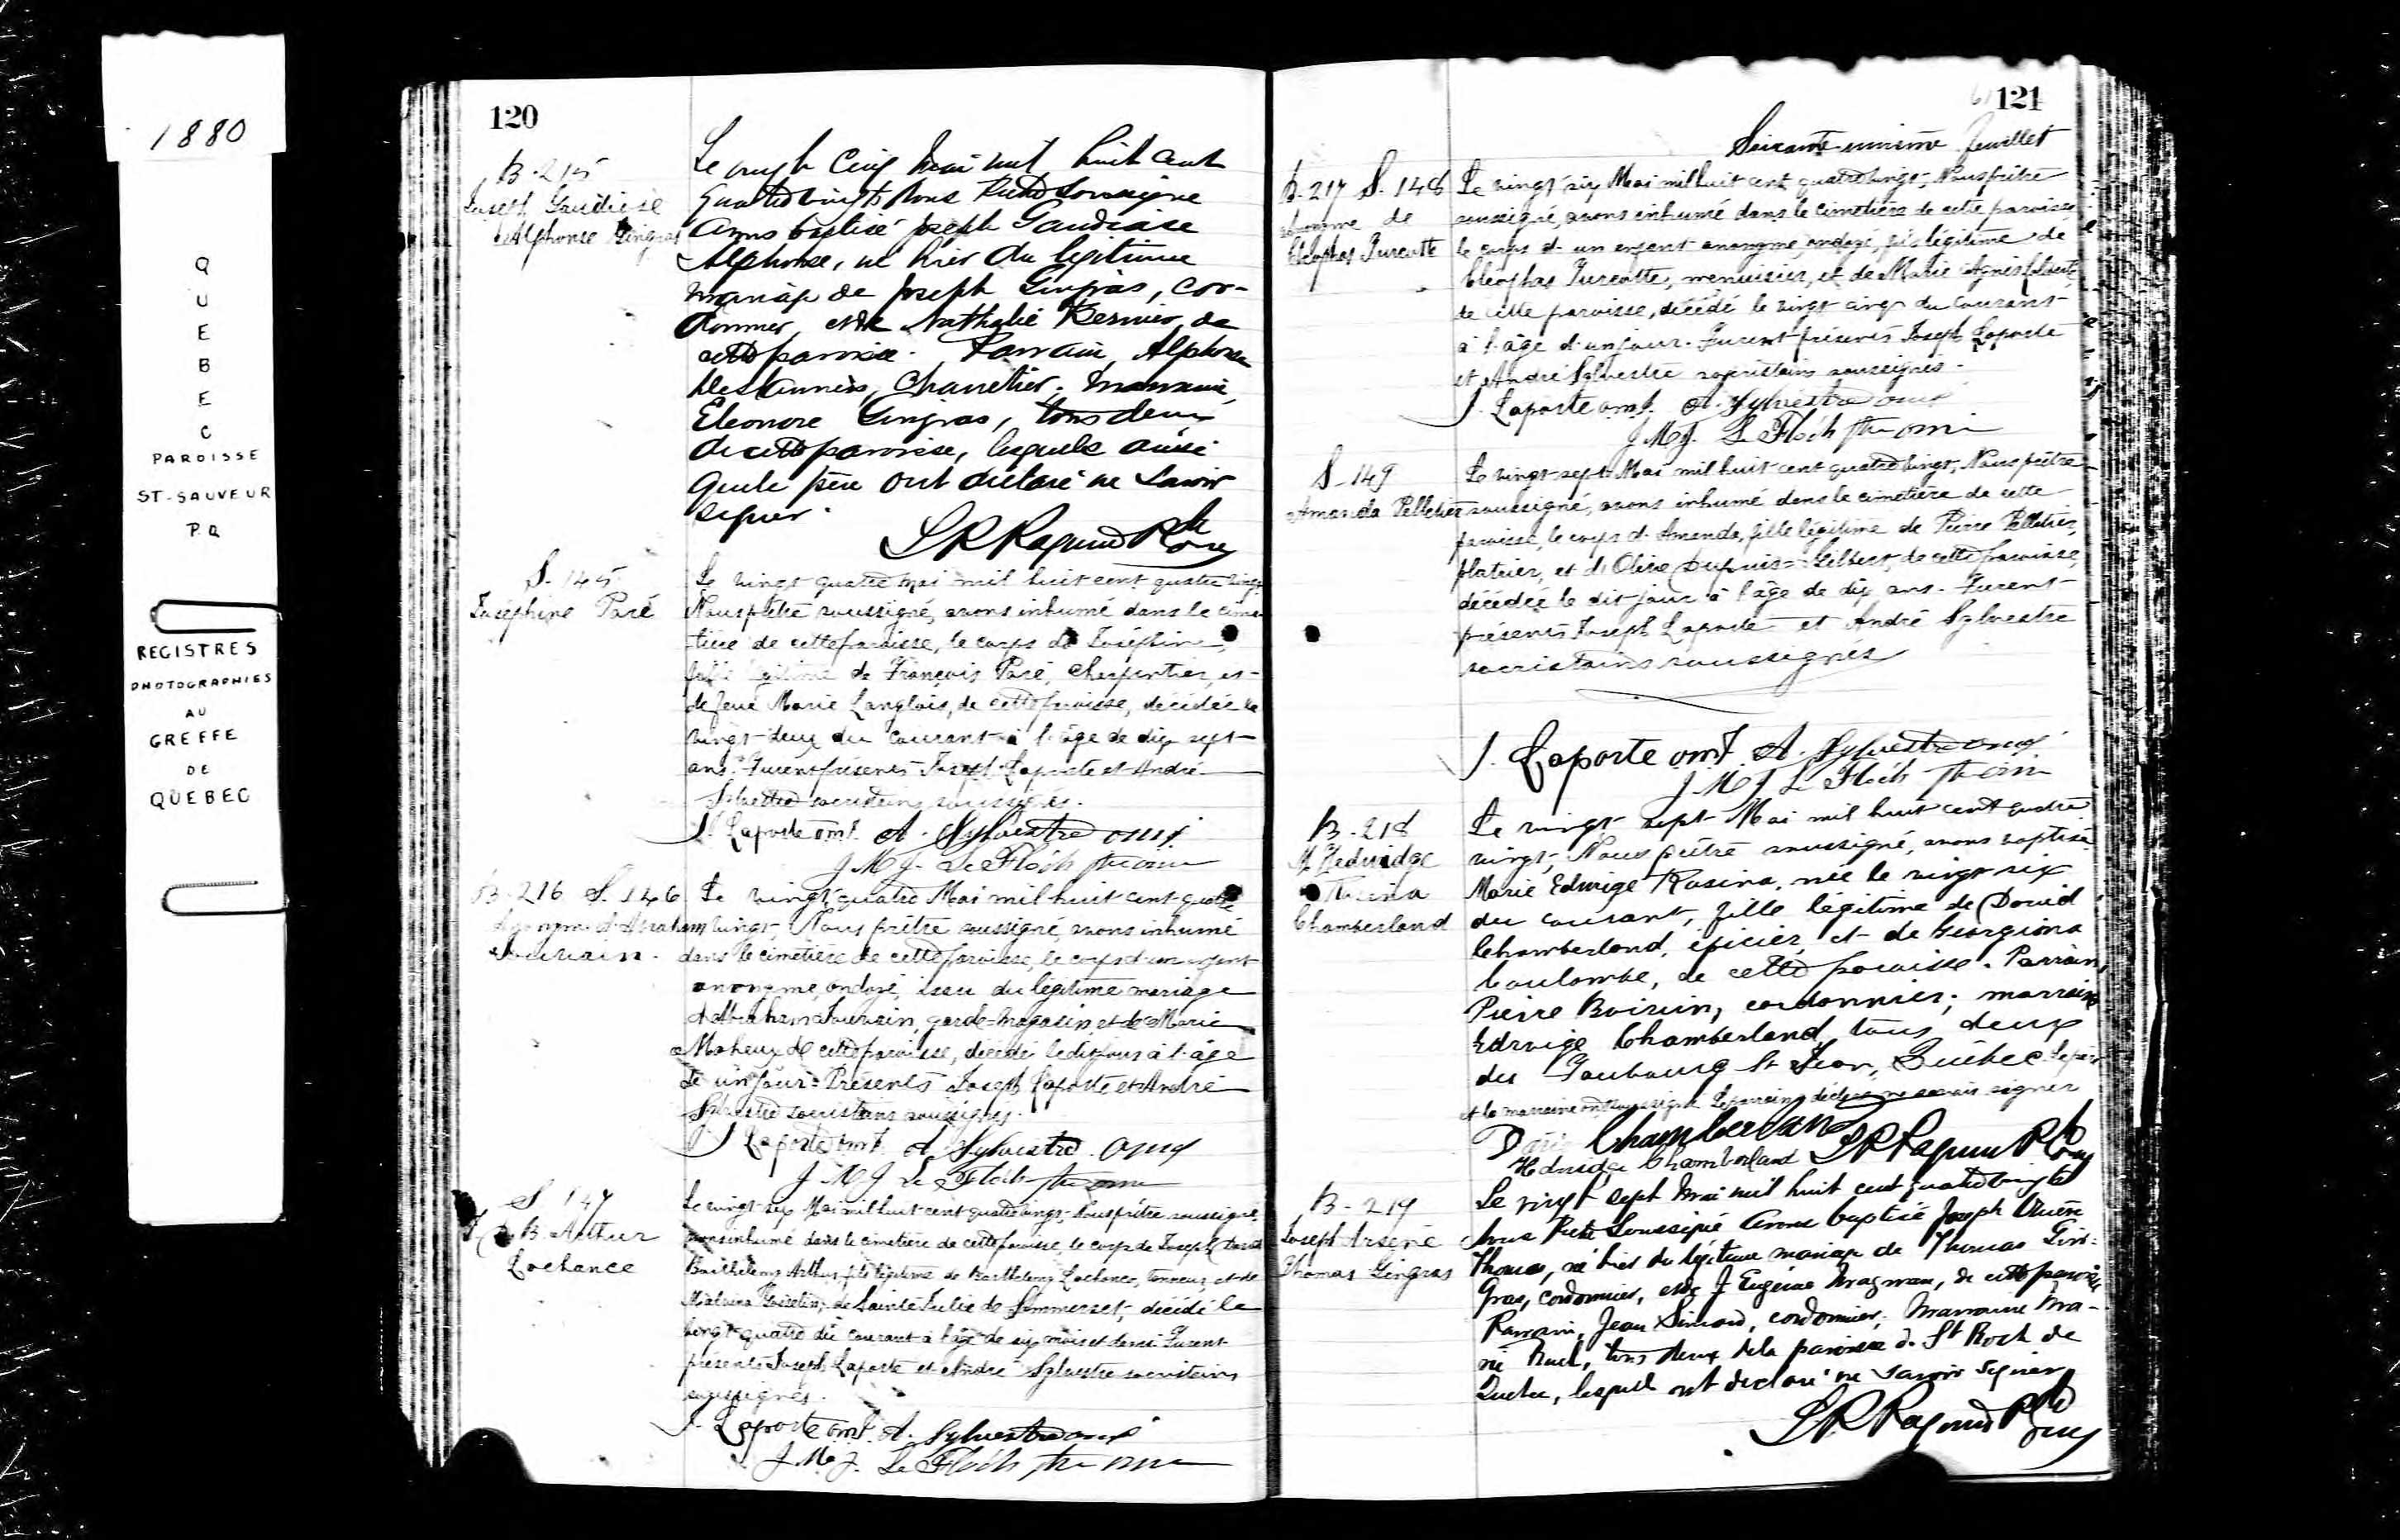 1880
Q
U
E
B
E
C
PAROISSE
ST-SAUVEUR
P.Q
REGISTRES
PHOTOGRAPHIES
AU
GREFFE
DE
QUEBEC
120
B-215
Joseph Gaudiose
Alphonse Gingras
Le vingt cinq Mai mil huit cent
quatre vingt Nous Prêtre soussigné
avons baptisé Joseph Gaudiose
Alphonse, né hier du légitime
mariage de Joseph Gingras, cor-
donnier, et de Nathalie Bernier de
cette paroisse. Parrain Alphonse
Desl charretier. Marraine,
Eleonore Gingras, tous deux
de cette paroisse, lesquels ainsi
que le père ont déclaré ne savoir
signer.
S. 145
Joséphine Paré
Le vingt quatre Mai mil huit cent quatre vingt
Nous prêtre soussigné, avons inhumé dans le cime-
tière de cette paroisse, le corps de Joséphine,
fille légitime de François Paré, charpentier, et
de feue Marie Langlois, de cette paroisse, décédée le
vingt-deux du courant à l'âge de dix sept
ans. Furent présents Joseph Laporte et André
Sylvestre sacristains soussignés.
J. Laporte omi. A. Sylvestre omi
J. M. J. Le Floch ptre omi
B-216 S. 146
Anonyme d'Abraham
Le vingt quatre Mai mil huit cent quatre
vingt, Nous prêtre soussigné, avons inhumé
dans le cimetière de cette paroisse, le corps d'un enfant
anonyme, ondoyé, issu du légitime mariage
d'Abraham garde-magasin, et de Marie
Maheux de cette paroisse, décédé le dit jour à l'âge
de un jour. Présents Joseph Laporte et André
Sylvestre sacristains soussignés.
J Laporte omi. A. Sylvestre omi
J. M. J. Le Floch ptre omi
S 147
B. Arthur
Lachance
Le vingt-six Mai mil huit cent quatre vingt, Nous prêtre soussigné,
avons inhumé dans le cimetière de cette paroisse, le corps de Joseph David
Barthélemy Arthur, fils légitime de Barthélemy Lachance, tanneur, et de
Malvina Gosselin, de Sainte Julie de Sommerset, décédé le
vingt-quatre du courant à l'âge de six mois et demi. Furent
présents Joseph Laporte et André Sylvestre sacristains
soussignés.
J. Laporte omi. A. Sylvestre omi
J. M. J. Le Floch ptre omi
121
Soixante-unième feuillet
B. 217 S. 148
Anonyme de
Cléophas Turcotte
Le vingt six Mai mil huit cent quatre vingt, Nous prêtre
soussigné, avons inhumé dans le cimetière de cette paroisse,
le corps d'un enfant anonyme, ondoyé, fils légitime de
Cléophas Turcotte, menuisier, et de Marie Agnès
de cette paroisse, décédé le vingt cinq du courant
à l'âge d'un jour. Furent présents Joseph Laporte
et André Sylvestre sacristains soussignés.
J. Laporte omi. A. Sylvestre omi
J. M. J. Le Floch ptre omi
S-149
Amanda Pelletier
Le vingt-sept Mai mil huit cent quatre vingt, Nous prêtre
soussigné, avons inhumé dans le cimetière de cette
paroisse, le corps d'Amanda, fille légitime de Pierre Pelletier,
platrier, et d'Olive Dupuis=Gilbert, de cette paroisse,
décédée le dit-jour à l'âge de dix ans. Furent
présents Joseph Laporte et André Sylvestre
sacristains soussignés
J. Laporte omi. A. Sylvestre omi
J. M. J. Le Floch ptre omi
B-218
M Hedwidge
Rosina
Chamberland
Le vingt sept Mai mil huit cent quatre
vingt, Nous prêtre soussigné, avons baptisé
Marie Edwige Rosina, née le vingt six
du courant, fille légitime de David
Chamberland, épicier, et de Georgiana
Coulombe, de cette paroisse. Parrain,
Pierre Boivin, cordonnier; marraine
Edwige Chamberland, tous deux
du Faubourg St Jean, Québec. Le père
et la marraine ont soussigné. Le parrain a déclaré ne savoir signer
Chamberland
Hedwidge Chamberland
B-219
Joseph Arsène
Thomas Gingras
Le vingt sept Mai mil huit cent quatre vingt
Nous Prêtre Soussigné avons baptisé Joseph Arsène
Thomas, né hier du légitime mariage de Thomas Gin-
gras, cordonnier, et de J Eugénie Magnan, de cette paroisse
Parrain, Jean Simard, cordonnier, Marraine Ma-
rie Ruel, tous deux de la paroisse de St Roch de
Québec, lesquels ont déclaré ne savoir signer